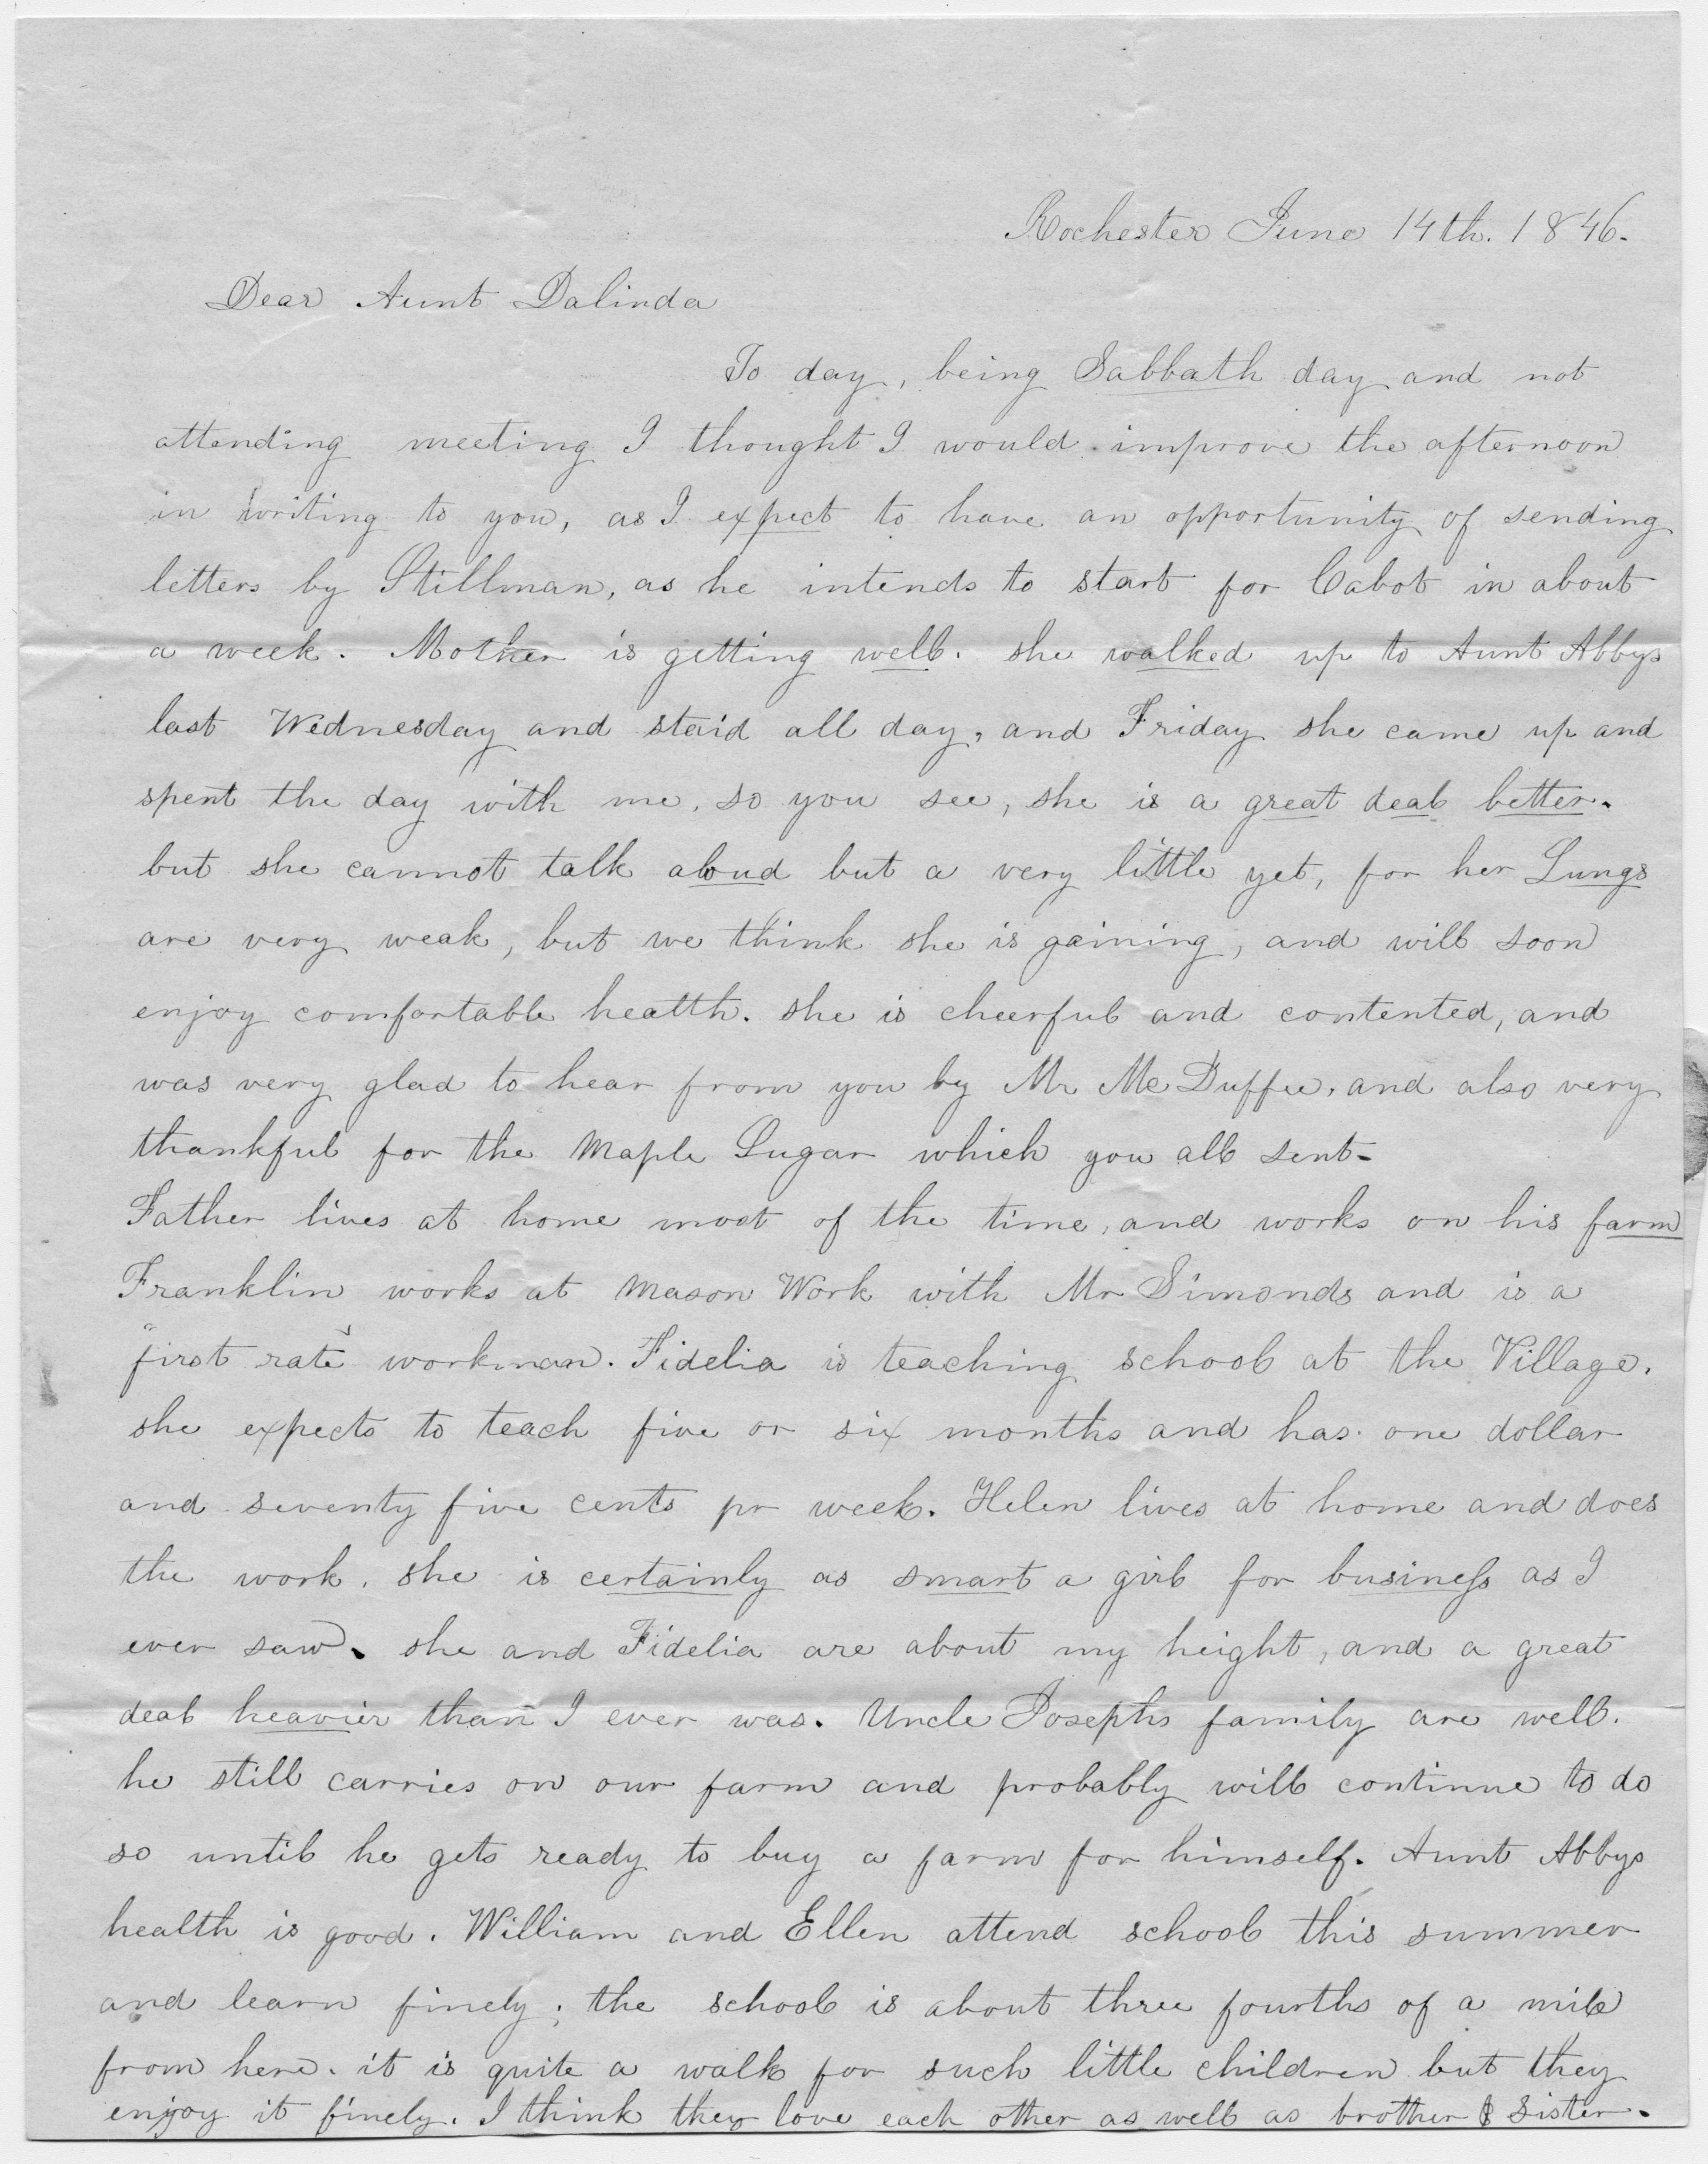 Rochester June 14th. 1846.
Dear Aunt Dalinda
To day, being Sabbath day and not
attending meeting I thought I would improve the afternoon
in writing to you, as I expect to have an opportunity of sending
letters by Stillman, as he intends to start for Cabot in about
a week. Mother is getting well. she walked up to Aunt Abbys
last Wednesday and staid all day, and Friday she came up and
spent the day with me, so you see, she is a great deal better.
but she cannot talk aloud but a very little yet, for her Lungs
are very weak, but we think she is gaining, and will soon
enjoy comfortable health. she is cheerful and contented, and
was very glad to hear from you by Mr McDuffee, and also very
thankful for the Maple Sugar which you all sent-
Father lives at home most of the time, and works on his farm
Franklin works at Mason Work with Mr Simonds and is a
"first rate" workman. Fidelia is teaching school at the Village.
she expects to teach five or six months and has one dollar
and seventy five cents pr week. Helen lives at home and does
the work. she is certainly as smart a girl for business as I
ever saw. she and Fidelia are about my height, and a great
deal heavier than I ever was. Uncle Josephs family are well.
he still carries on our farm and probably will continue to do
so until he gets ready to buy a farm for himself. Aunt Abbys
health is good. William and Ellen attend school this summer
and learn finely; the school is about three fourths of a mile
from here. it is quite a walk for such little children but they
enjoy it finely. I think they love each other as well as brother & Sister.